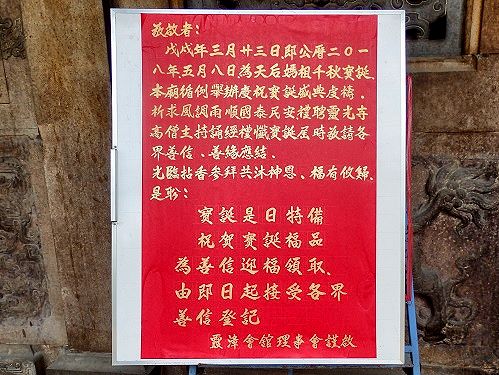 敬啟者：
戊戌年三月廿三日即公曆二〇一
八年五月八日為天后媽祖千秋寶誕、
本廟循例舉辦慶祝寶誕盛典虔備、
祈求風調雨順國泰民安禮聘靈光寺
高僧主持誦經禮懺寶誕屆時敬請各
界善信、善緣應結、
光臨拈香參拜共沐神恩、福有攸歸、
是盼：
寶誕是日特備
祝賀寶誕福品
為善信迎福領取、
由即日起接受各界
善信登記
霞漳會館理事會謹啟